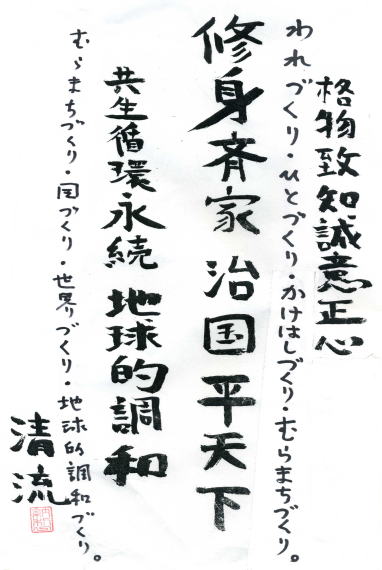 格物致知誠意正心
われづくり・ひとづくり・かけはしづくり・むらまちづくり。
修身斉家治国平天下
共生循環永続 地球的調和
むらまちづくり・国づくり・世界づくり・地球的調和づくり。
清流